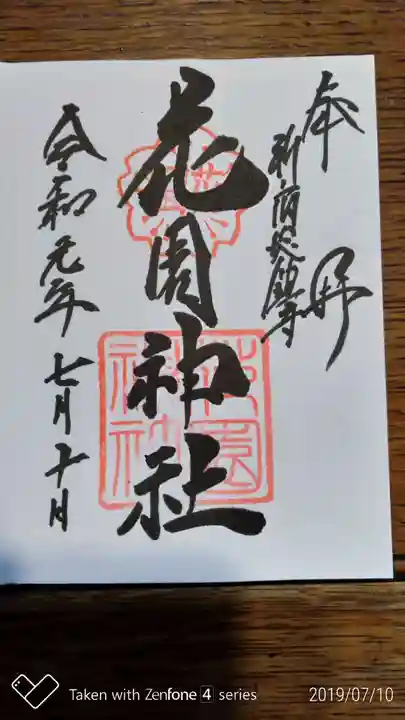 奉拝
新宿総鎮守
花園神社
花園神社
令和元年七月十日
Taken with Zenfone 4 series
2019/07/10